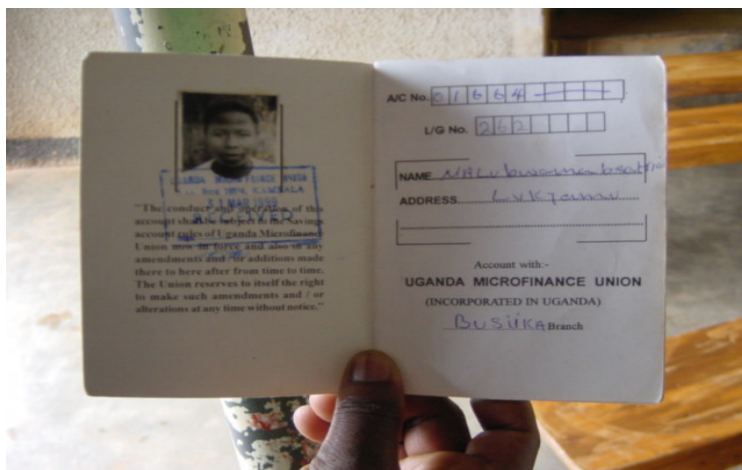 UGANDA MICROFINANCE UNION
P.O. Box 10184, KAMPALA
31 MAR 1999
RECEIVED
"The conduct and operation of this
account shall be subject to the savings
account rules of Uganda Microfinance
Union now in force and also in any
amendments and / or additions made
there to here after from time to time.
The Union reserves to itself the right
to make such amendments and / or
alterations at any time without notice."
A/C No. 01664
L/G No. 262
NAME
ADDRESS
Account with:-
UGANDA MICROFINANCE UNION
(INCORPORATED IN UGANDA)
BUSIIKA Branch